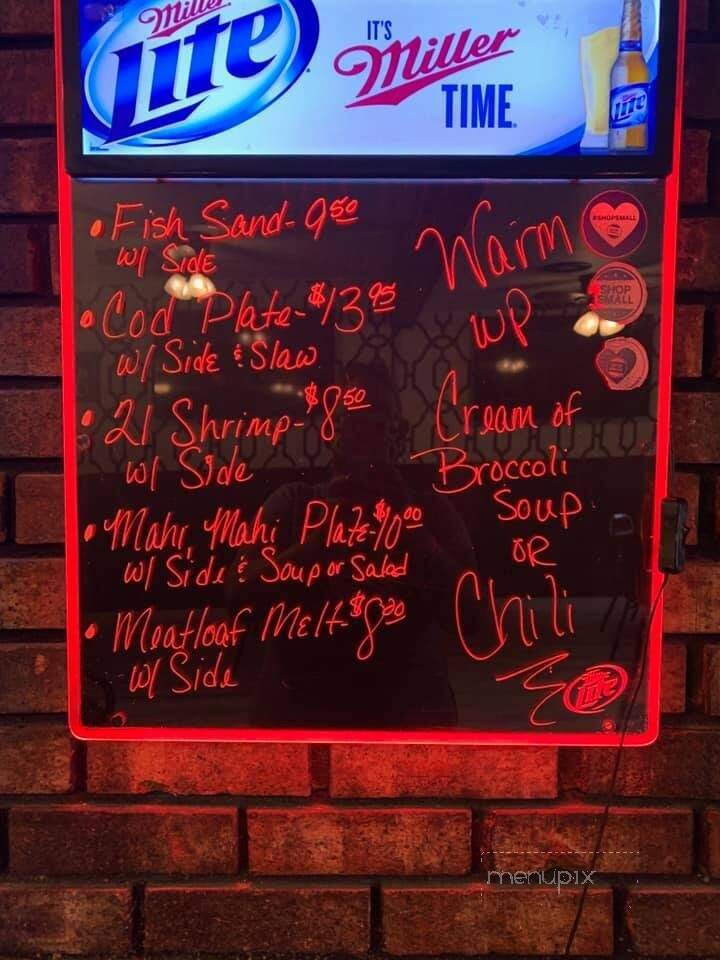 Miller
Lite
IT'S
Miller
TIME
Lite
• Fish Sand- 9⁵⁰
w/ Side
• Cod Plate- $13⁹⁵
w/ Side & Slaw
• 21 Shrimp- $8⁵⁰
w/ Side
• Mahi, Mahi Plate- $10⁰⁰
w/ Side & Soup or Salad
• Meatloaf Melt- $8⁰⁰
w/ Side
Warm
UP
Cream of
Broccoli
Soup
OR
Chili
#SHOPSMALL
SHOP
SMALL
Lite
menupix